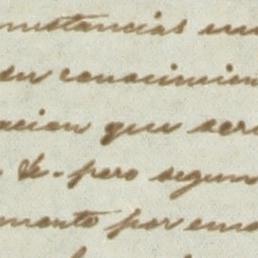 unstancias en
su conocimien
acion que ser
&. pero segun
mento por em